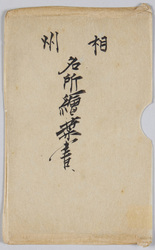 相州
名所繪葉書